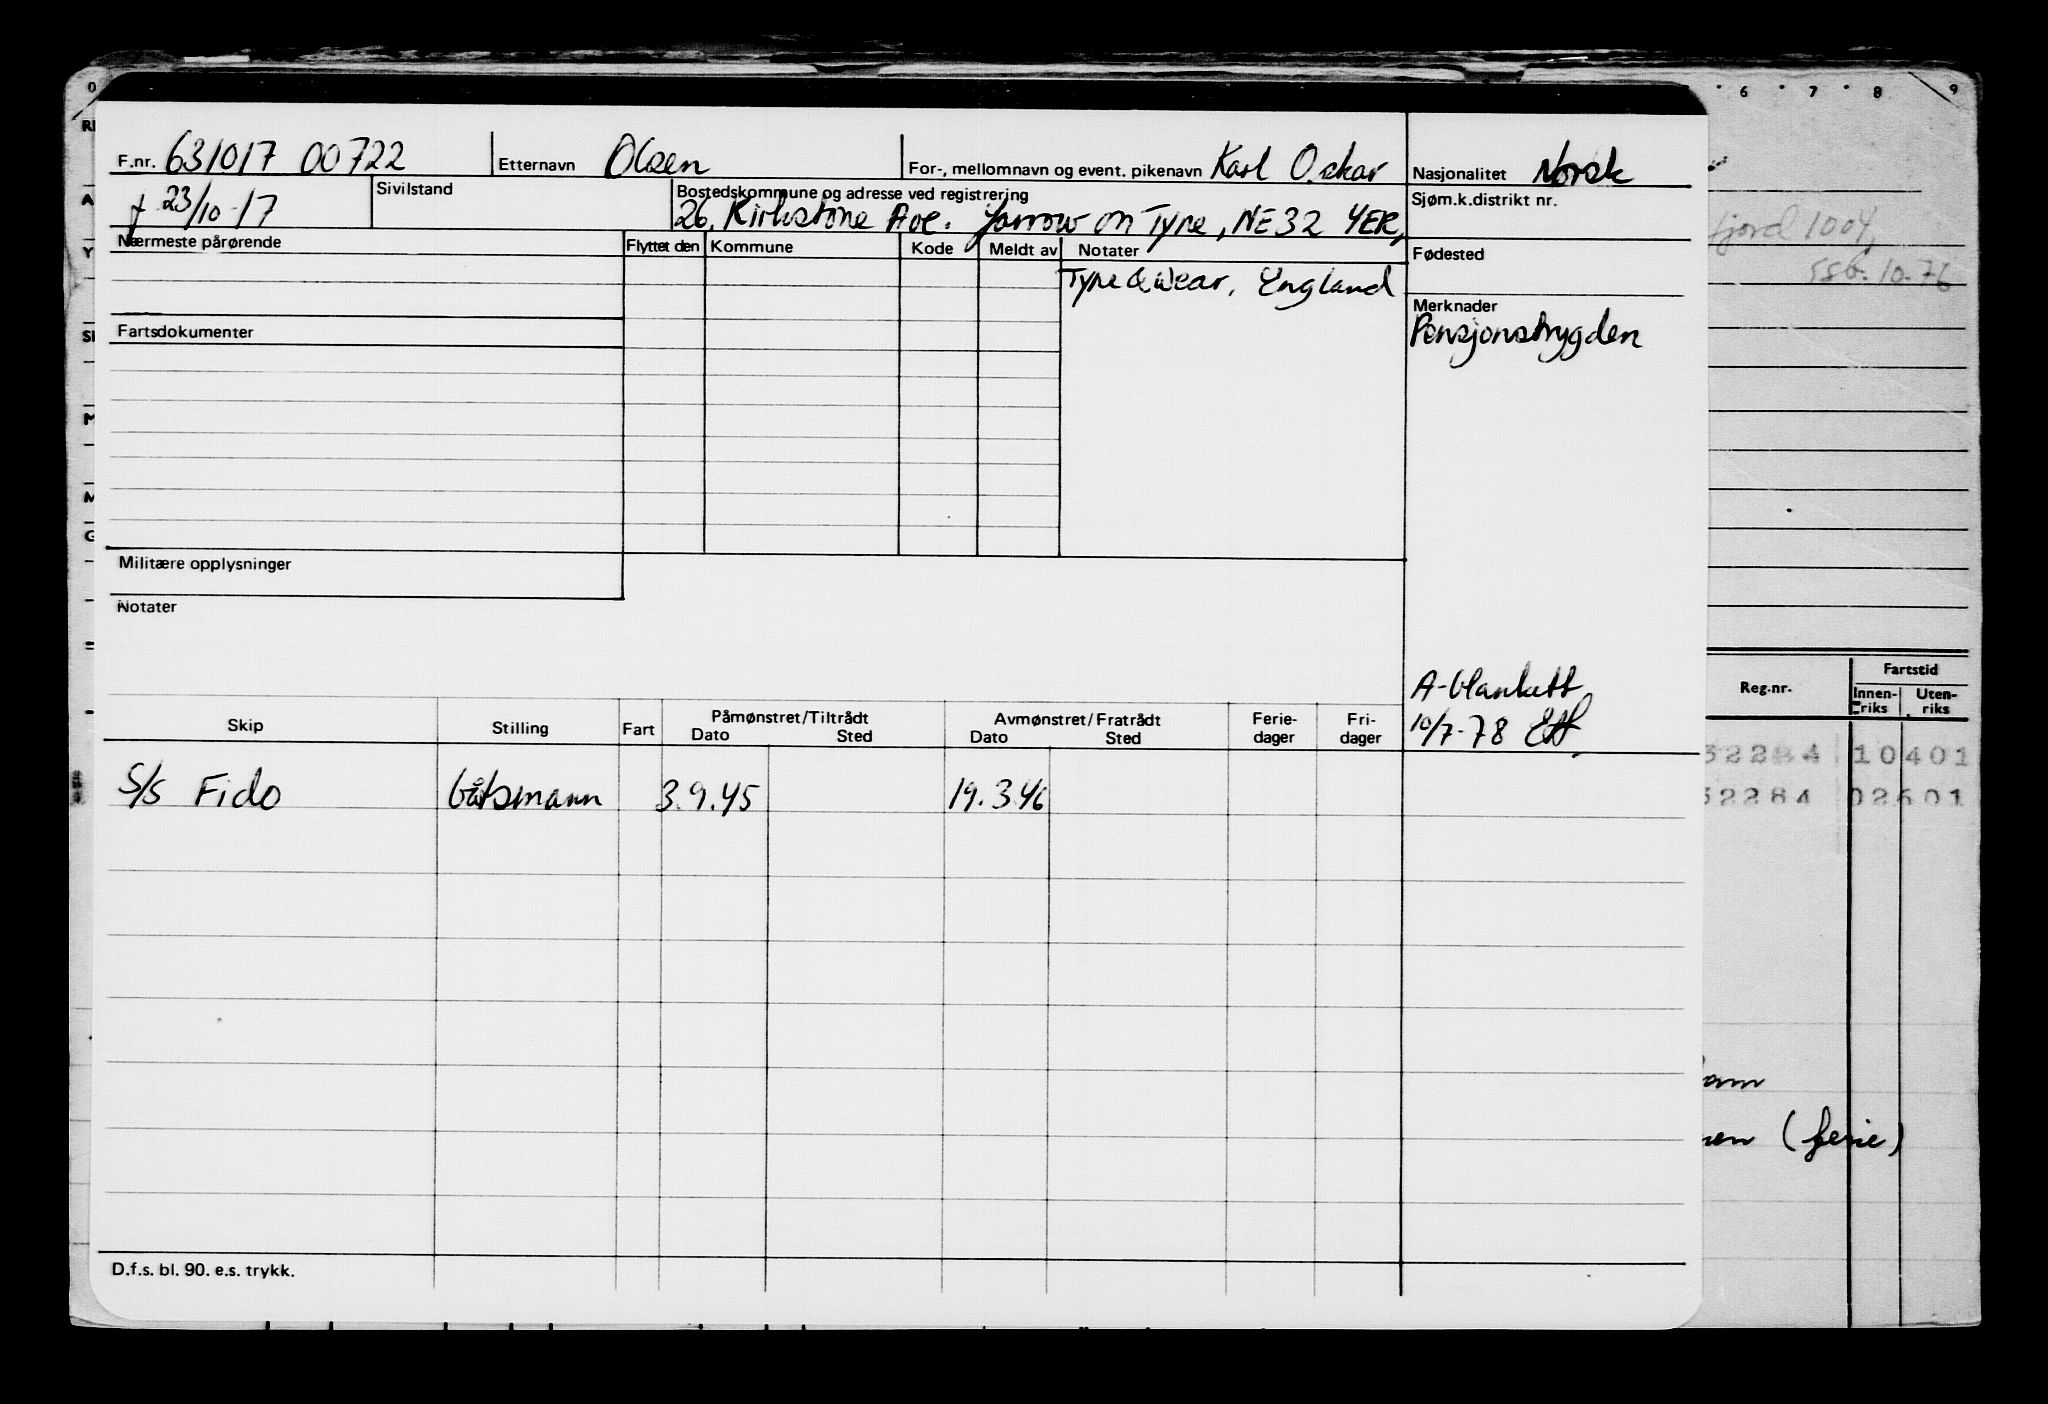 0 6 7 8 9
F.nr. 631017 00722 Etternavn Olsen For-, mellomnavn og event. pikenavn Karl Oskar Nasjonalitet Norsk
f 23/10-17 Sivilstand Bostedskommune og adresse ved registrering Sjøm.k.distrikt nr.
26, Kirkstone Ave. Jarrow on Tyne, NE32 YER,
fjord 1004,
Nærmeste pårørende Flyttet den Kommune Kode Meldt av Notater Fødested
Tyne & Wear, England
10.76
Merknader
Fartsdokumenter Pensjonstrygden
Militære opplysninger
Notater
A-blankett
10/7-78
Skip Stilling Fart Påmønstret/Tiltrådt Dato Sted Avmønstret/Fratrådt Dato Sted Ferie-dager Fri-dager
Reg.nr. Fartstid Innen-riks Uten-riks
S/S Fido båtsmann 3.9.45 19.3.46
32284 10401
52284 02601
(ferie)
D.f.s. bl. 90. e.s. trykk.